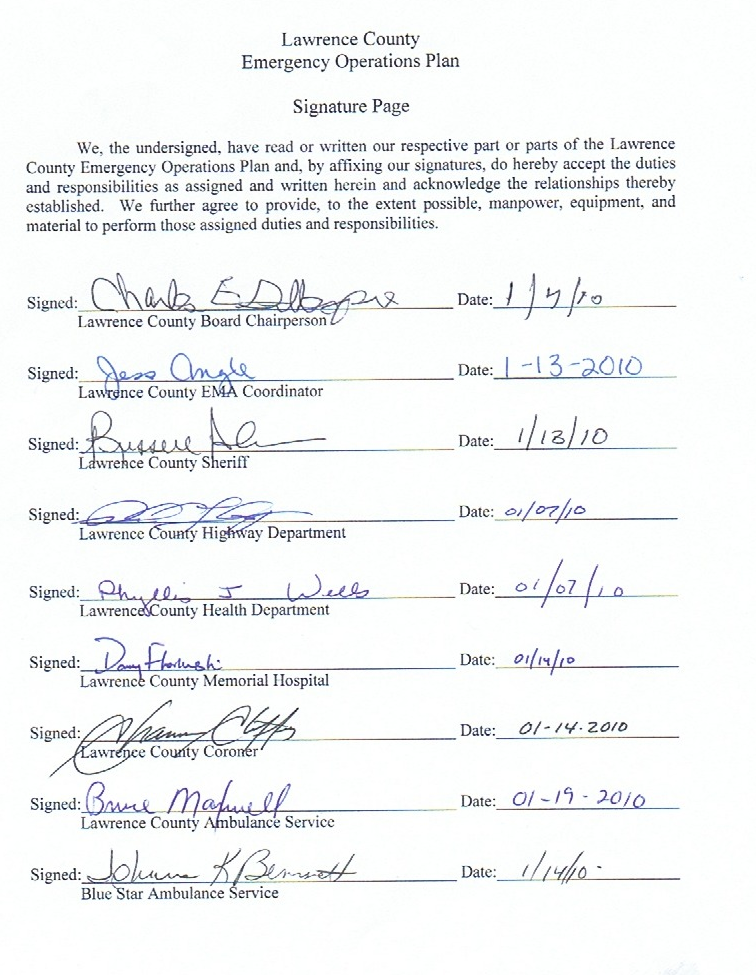 Lawrence County
Emergency Operations Plan
Signature Page
We, the undersigned, have read or written our respective part or parts of the Lawrence
County Emergency Operations Plan and, by affixing our signatures, do hereby accept the duties
and responsibilities as assigned and written herein and acknowledge the relationships thereby
established. We further agree to provide, to the extent possible, manpower, equipment, and
material to perform those assigned duties and responsibilities.
Signed: Charles E Date: 1/7/10
Lawrence County Board Chairperson
Signed: Jess Angle Date: 1-13-2010
Lawrence County EMA Coordinator
Signed: Russell Date: 1/13/10
Lawrence County Sheriff
Signed: Date: 01/07/10
Lawrence County Highway Department
Signed: Phyllis J Wells Date: 01/07/10
Lawrence County Health Department
Signed: Date: 01/14/10
Lawrence County Memorial Hospital
Signed: Date: 01-14-2010
Lawrence County Coroner
Signed: Bruce Maxwell Date: 01-19-2010
Lawrence County Ambulance Service
Signed: K Bennett Date: 1/14/10
Blue Star Ambulance Service